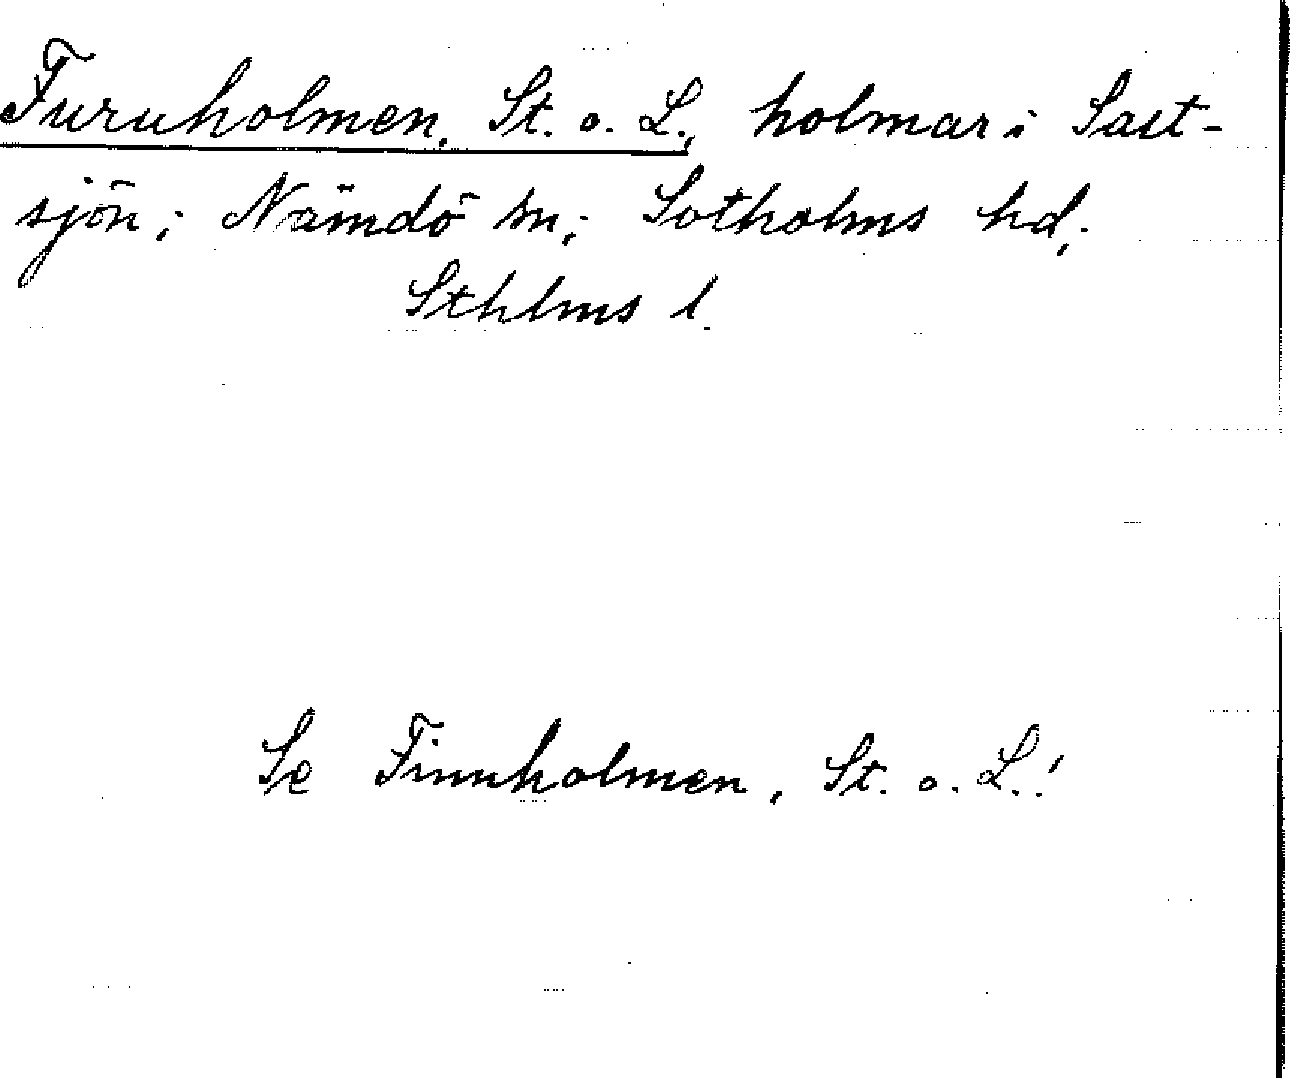 Furuholmen, St. o. L., holmar i Salt-
sjön; Nämdö sn; Sotholms hd;
Sthlms l.
Se Finnholmen, St. o. L.!